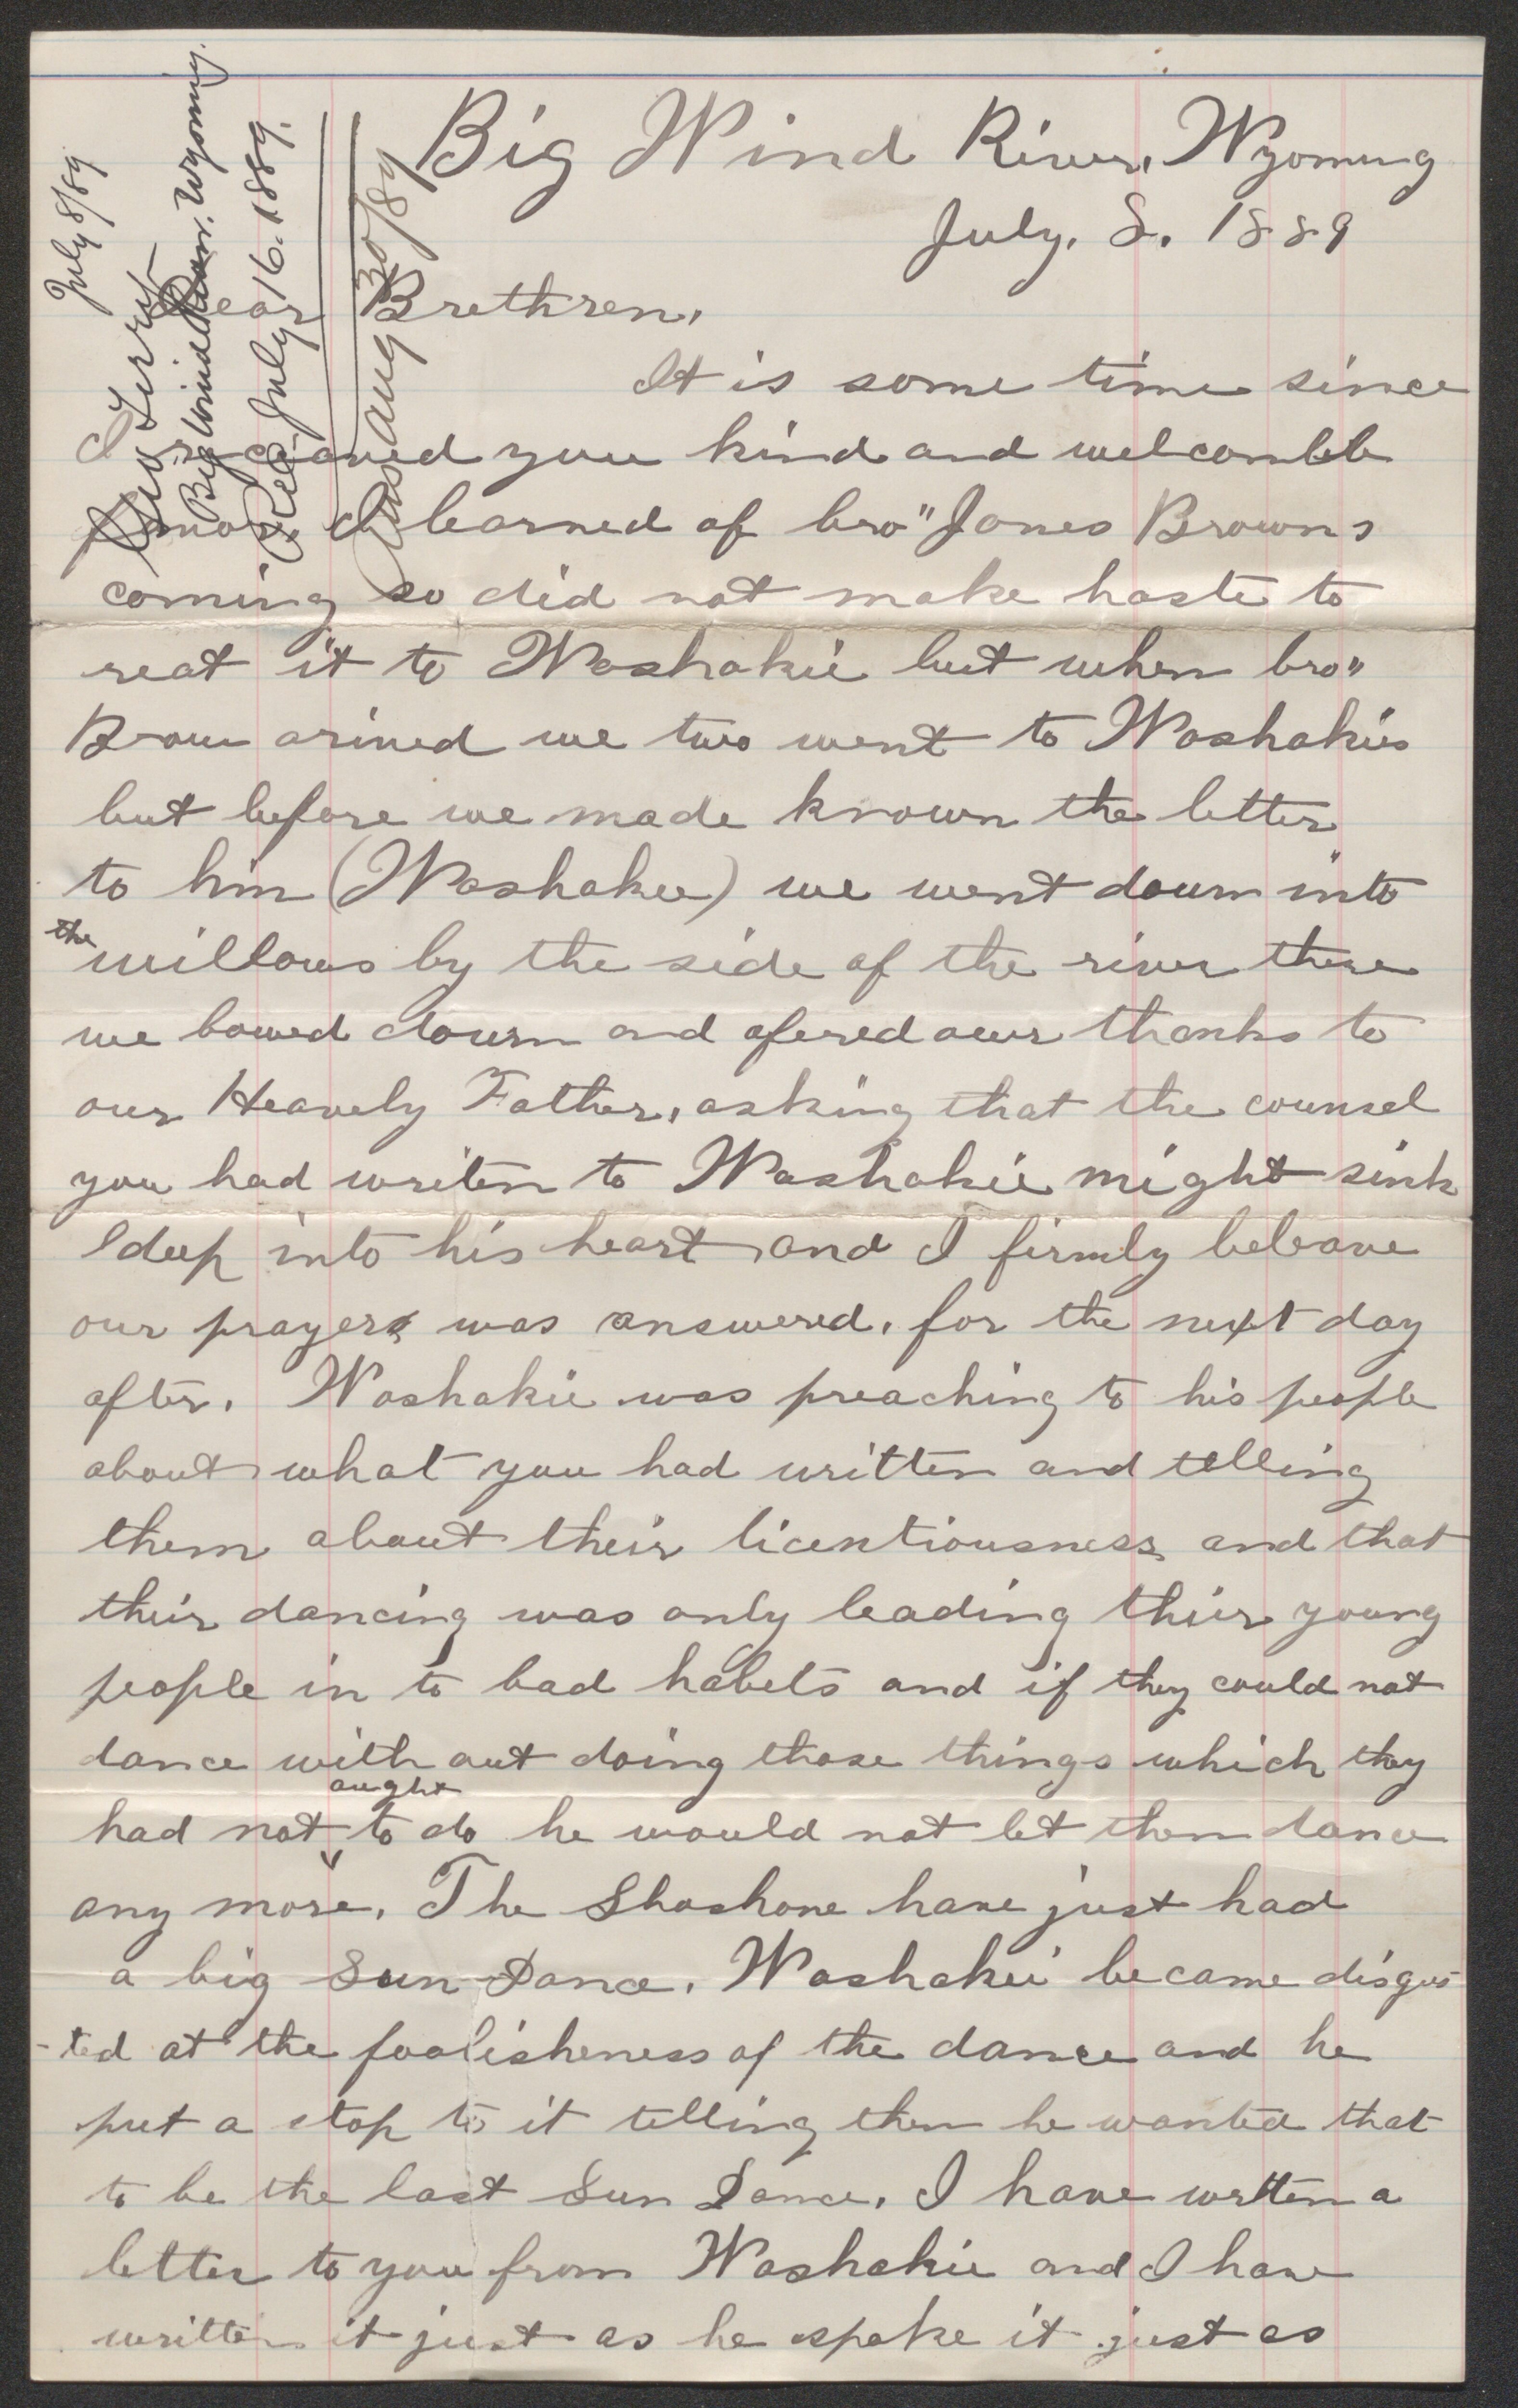 Big Wind River, Wyoming
July. 8. 1889
Dear Brethren,
It is some time since
I receaved you kind and welcombe
I learned of bro" James Browns
coming so did not make haste to
reat it to Washakie but when bro"
Brown arived we two went to Washakies
but before we made known the letter
to him (Washakee) we went down into
the willows by the side of the river there
we bowed down and ofered our thanks to
our Heavely Father, asking that the counsel
you had writen to Washakie might sink
deep into his heart and I firmly beleave
our prayers was answered, for the next day
after, Washakie was preaching to his people
about what you had written and telling
them about their licentiousness and that
their dancing was only leading thier young
people in to bad habets and if they could not
dance with out doing those things which they
had not aught to do he would not let them dance
any more. The Shoshone have just had
a big Sun Dance. Washakie became disgus-
-ted at the foolisheness of the dance and he
put a stop to it telling them he wanted that
to be the last Sun Dance. I have written a
letter to you from Washakie and I have
written it just as he spoke it just as
July 8/89
Big Wind River. Wyoming.
Recd July 16. 1889.
Ans Aug 30/89